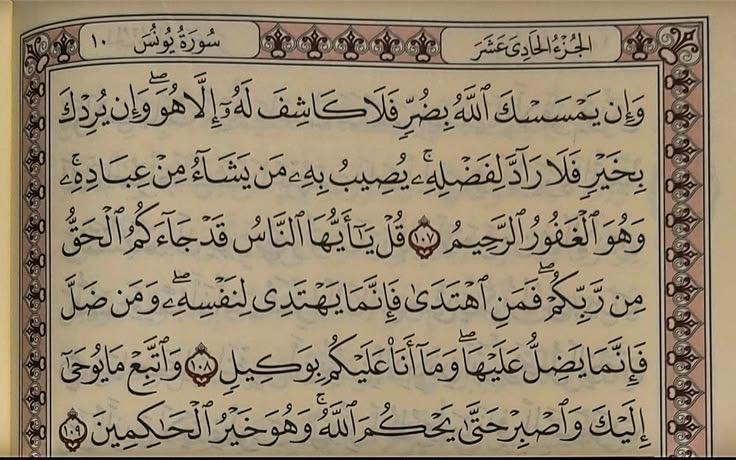 الجُزْءُ الحَادِى عَشَرَ
سُورَةُ يُونُسَ ١٠
وَإِن يَمْسَسْكَ ٱللَّهُ بِضُرٍّ فَلَا كَاشِفَ لَهُۥٓ إِلَّا هُوَۖ وَإِن يُرِدْكَ
بِخَيْرٍ فَلَا رَآدَّ لِفَضْلِهِۦۚ يُصِيبُ بِهِۦ مَن يَشَآءُ مِنْ عِبَادِهِۦۚ
وَهُوَ ٱلْغَفُورُ ٱلرَّحِيمُ ١٠٧ قُلْ يَٰٓأَيُّهَا ٱلنَّاسُ قَدْ جَآءَكُمُ ٱلْحَقُّ
مِن رَّبِّكُمْۖ فَمَنِ ٱهْتَدَىٰ فَإِنَّمَا يَهْتَدِى لِنَفْسِهِۦۖ وَمَن ضَلَّ
فَإِنَّمَا يَضِلُّ عَلَيْهَاۖ وَمَآ أَنَا۠ عَلَيْكُم بِوَكِيلٍ ١٠٨ وَٱتَّبِعْ مَا يُوحَىٰٓ
إِلَيْكَ وَٱصْبِرْ حَتَّىٰ يَحْكُمَ ٱللَّهُۚ وَهُوَ خَيْرُ ٱلْحَٰكِمِينَ ١٠٩